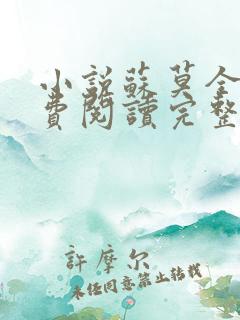 小說蘇莫全
費閱讀完整
許摩尔
未经同意禁止转载